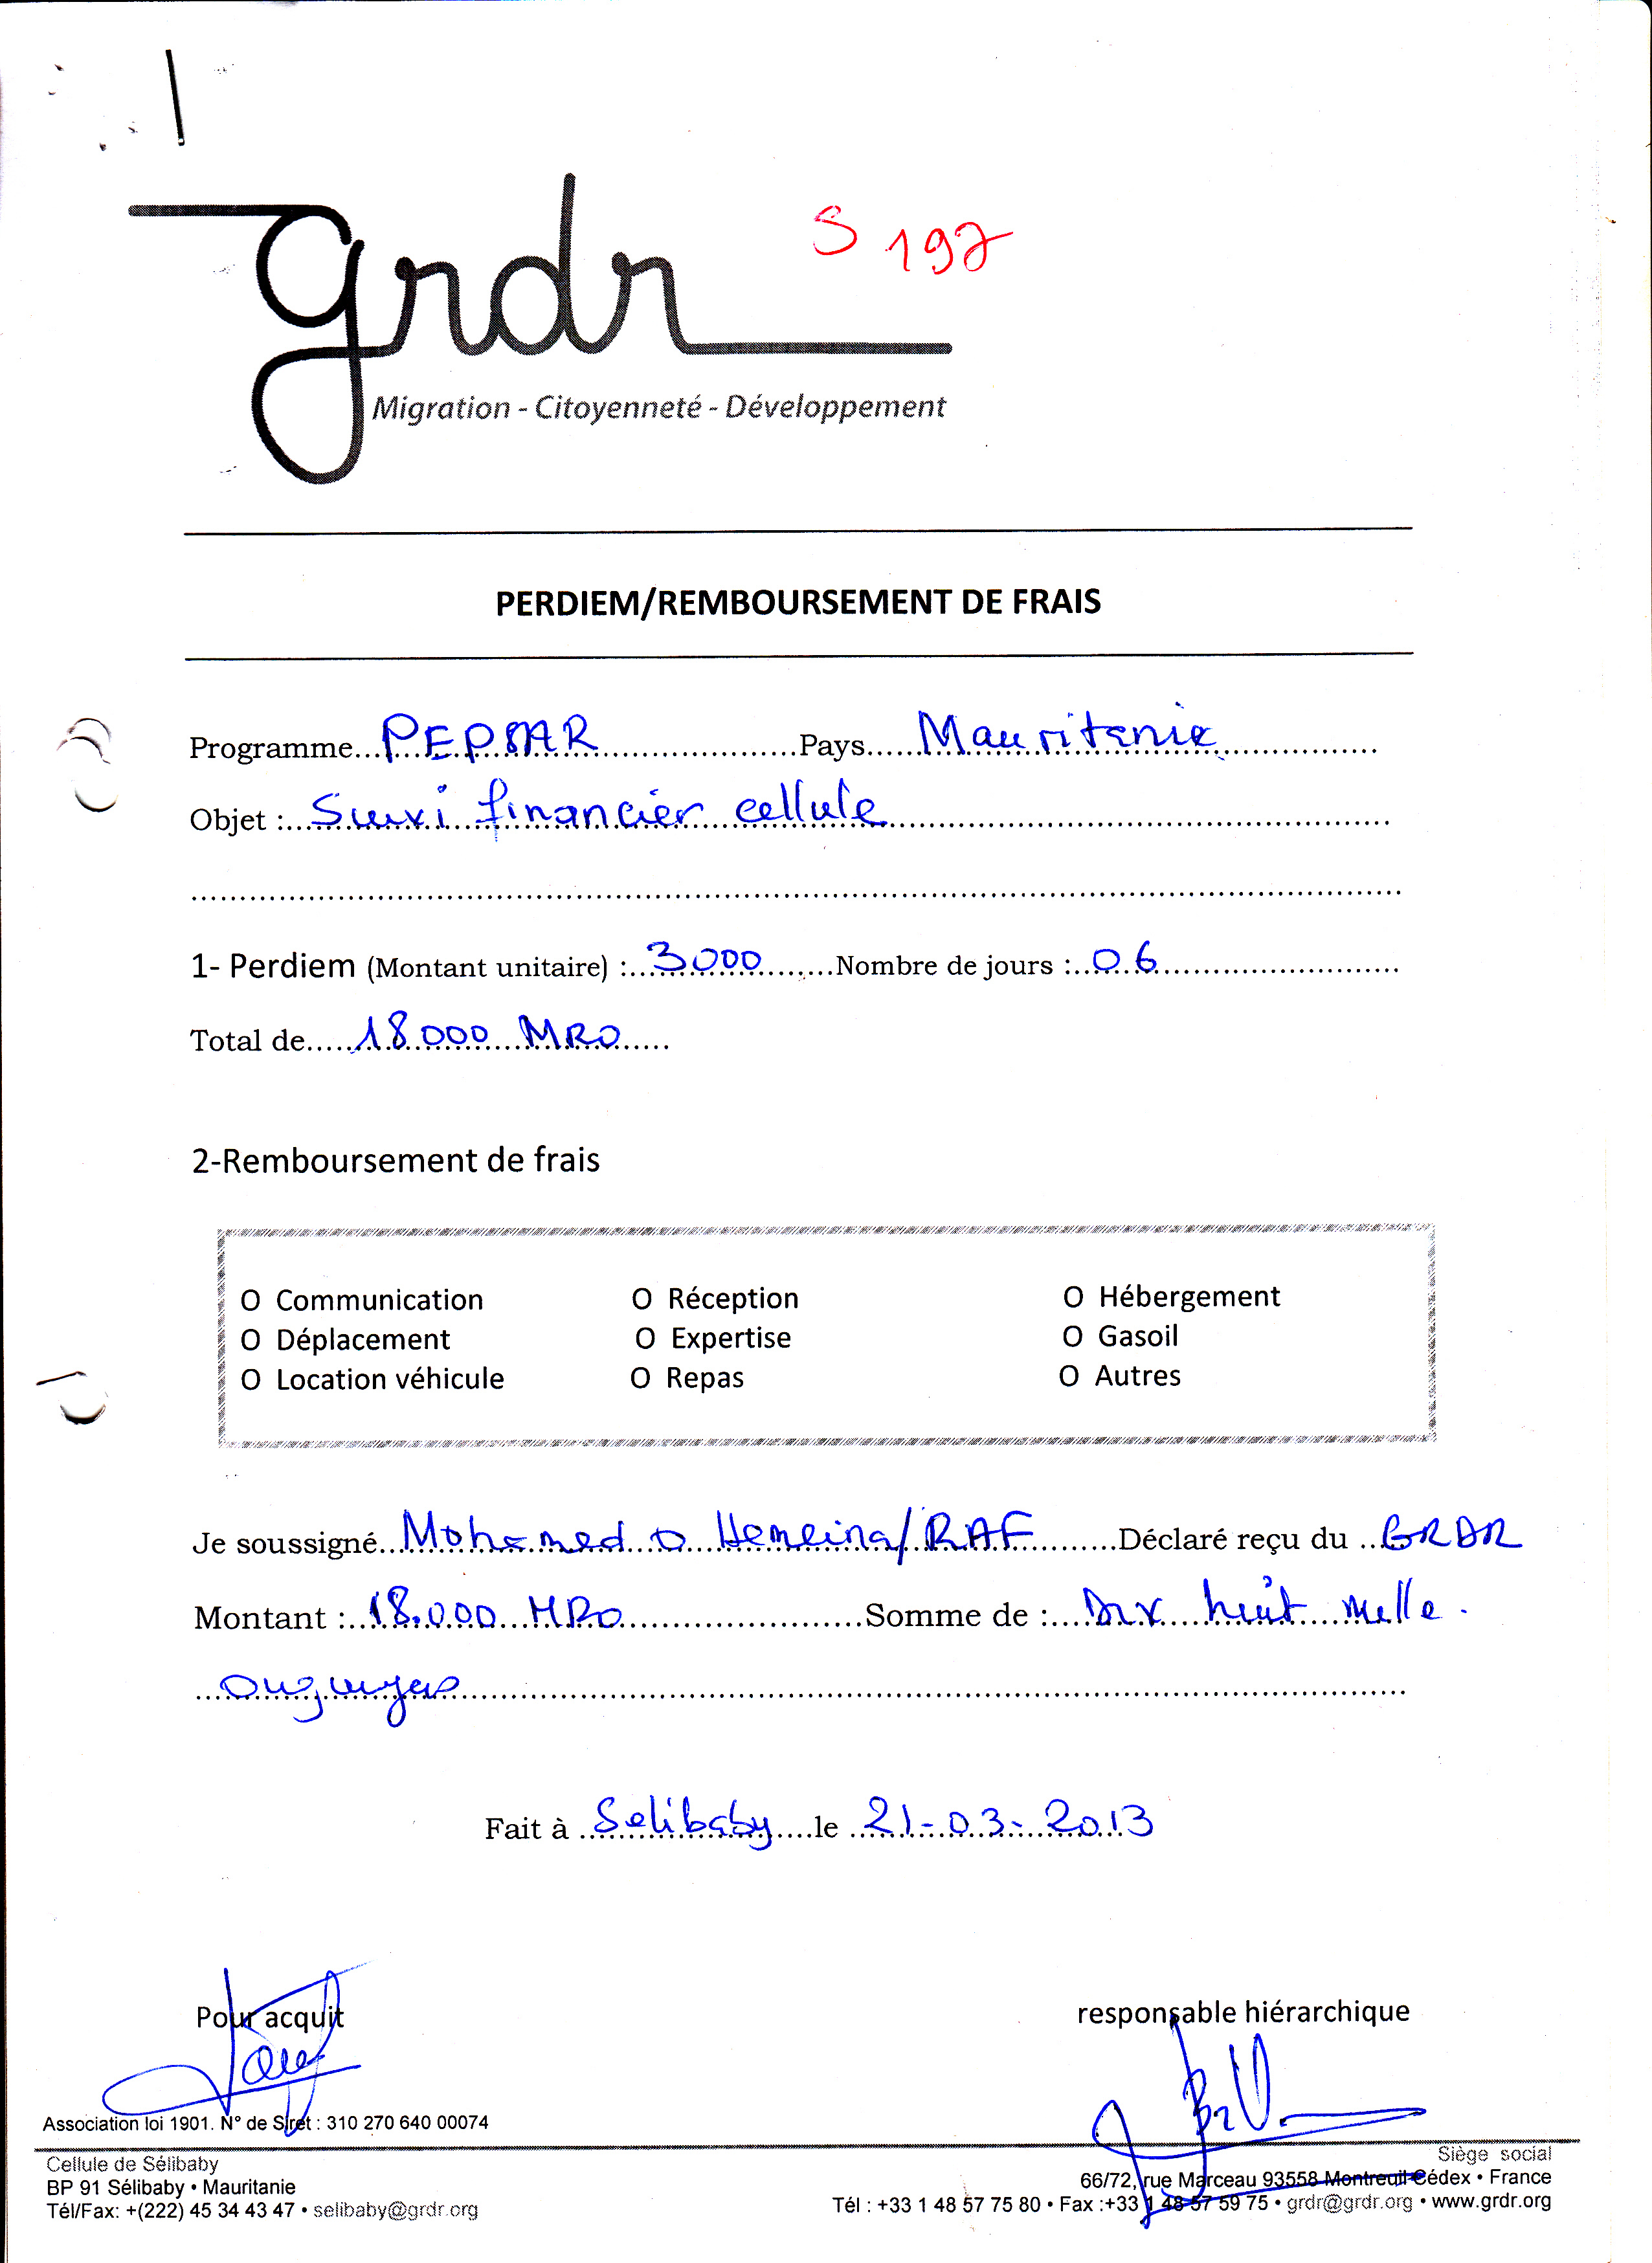 grdr
S 197
Migration - Citoyenneté - Développement
PERDIEM/REMBOURSEMENT DE FRAIS
Programme...PEPSAR...Pays...Mauritanie
Objet :...Suivi financier cellule
1- Perdiem (Montant unitaire) :...3000...Nombre de jours :...06
Total de...18000 MRO...
2-Remboursement de frais
O Communication O Réception O Hébergement
O Déplacement O Expertise O Gasoil
O Location véhicule O Repas O Autres
Je soussigné...Mohamed O Hemeina/RAF...Déclaré reçu du ...GRDR
Montant :...18.000 MRO...Somme de :...Dix huit mille.
...Ouguiyas...
Fait à ...Selibaby...le ...21-03-2013
Pour acquit responsable hiérarchique
Association loi 1901. N° de Siret : 310 270 640 00074
Cellule de Sélibaby Siège social
BP 91 Sélibaby • Mauritanie 66/72, rue Marceau 93558 Montreuil Cédex • France
Tél/Fax: +(222) 45 34 43 47 • selibaby@grdr.org Tél : +33 1 48 57 75 80 • Fax :+33 1 48 57 59 75 • grdr@grdr.org • www.grdr.org